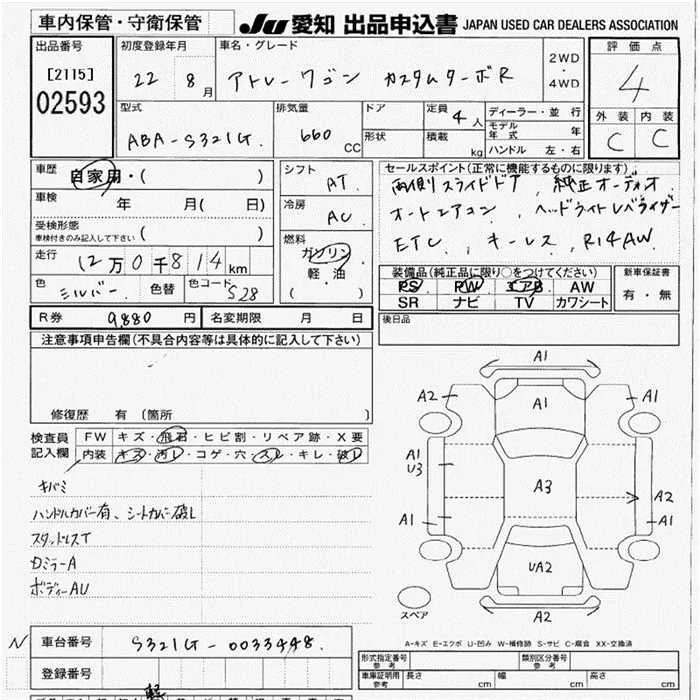 車内保管・守衛保管
JU 愛知 出品申込書 JAPAN USED CAR DEALERS ASSOCIATION
出品番号
[2115]
02593
初度登録年月
22 8月
車名・グレード
アトレーワゴン カスタムターボR
2WD
・
4WD
評価点
4
外装 内装
C C
型式
ABA-S321G
排気量
660 CC
ドア
形状
定員 4人
積載 kg
ディーラー・並行
モデル年式 年
ハンドル 左・右
車歴
自家用・( )
車検 年 月(日)
受検形態
車検付きのみ記入して下さい ( )
走行 12万0千814km
色 シルバー 色替 色コード S28
シフト
AT
冷房
AC
燃料
ガソリン
軽・油
( )
セールスポイント(正常に機能するものに限ります)
両側スライドドア、純正オーディオ
オートエアコン、ヘッドライトレベライザー
ETC、キーレス、R14AW
装備品(純正品に限り○をつけてください)
PS PW エアB AW
SR ナビ TV カワシート
新車保証書
有・無
後日品
R券 9,880円 名変期限 月 日
注意事項申告欄(不具合内容等は具体的に記入して下さい)
修復歴 有〔箇所 〕
検査員
記入欄
FW キズ・飛石・ヒビ割・リペア跡・X要
内装 キズ・汚レ・コゲ・穴・スレ・キレ・破レ
キバミ
ハンドルカバー有、シートカバー破レ
スタッドレスT
Dミラー A
ボディー AU
A1
A2 A1 A1
A1
U3
A3
A2
A1 A1
UA2
A2
スペア
A-キズ E-エクボ U-凹み W-補修跡 S-サビ C-腐食 XX-交換済
N
車台番号 S321G-0033448
登録番号
形式指定番号
参考
類別区分番号
参考
車庫証明用
参考
長さ cm 幅 cm 高さ cm
軽